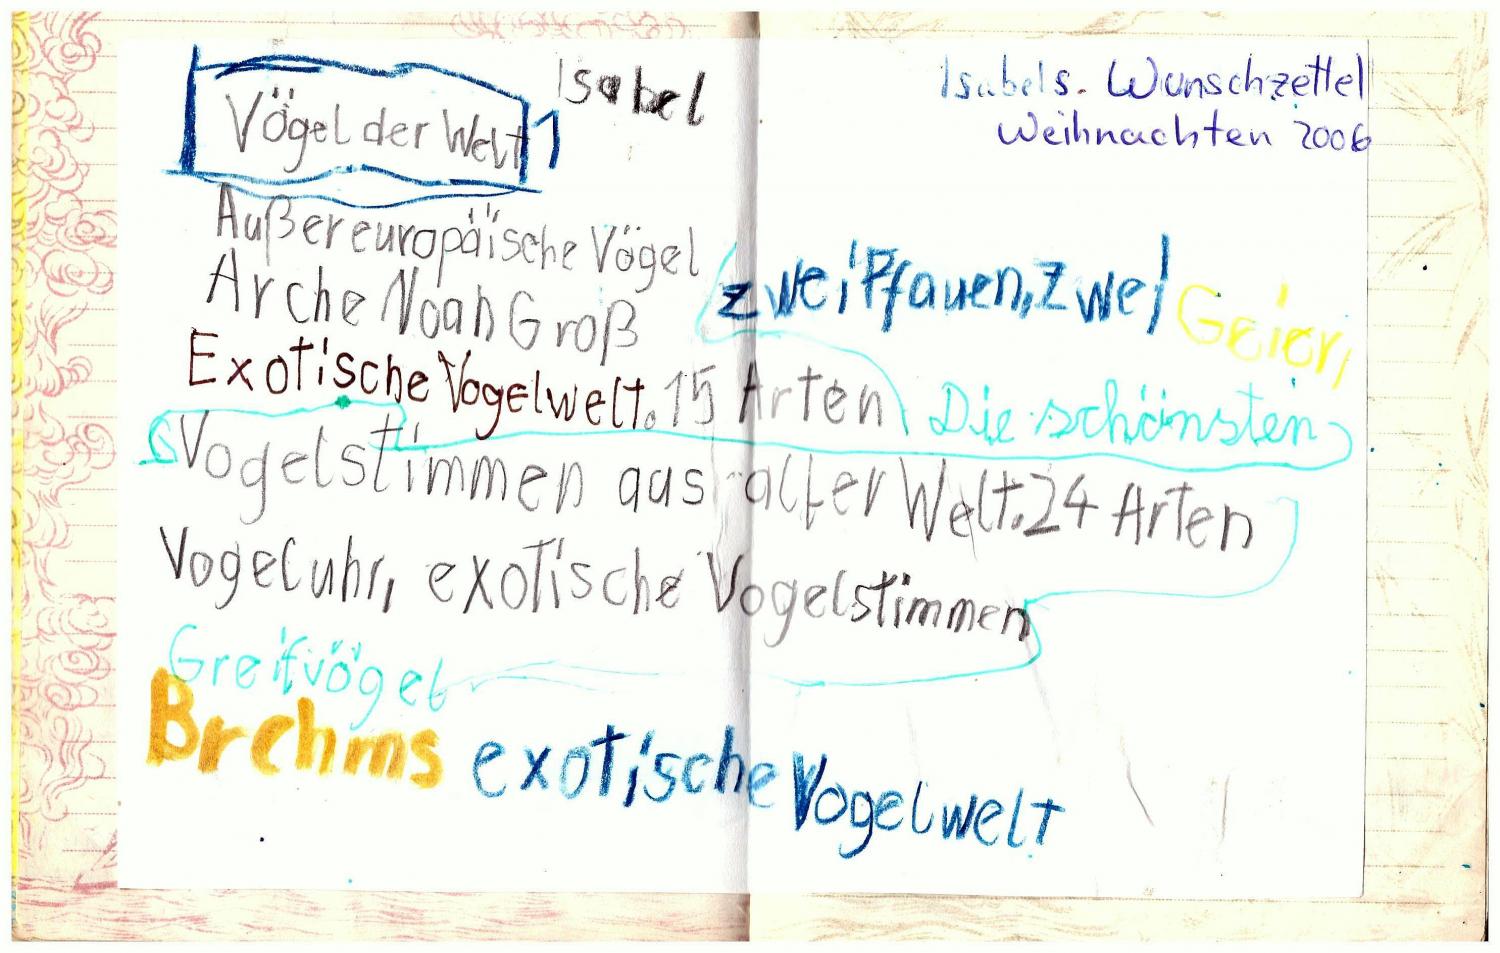 Isabel
Isabels. Wunschzettel
Weihnachten 2006
Vögel der Welt 1
Außereuropäische Vögel
Arche Noah Groß
zwei Pfauen, zwei Geier,
Exotische Vogelwelt. 15 Arten
Die schönsten
Vogelstimmen aus aller Welt. 24 Arten
Vogeluhr, exotische Vogelstimmen
Greifvögel
Brehms exotische Vogelwelt